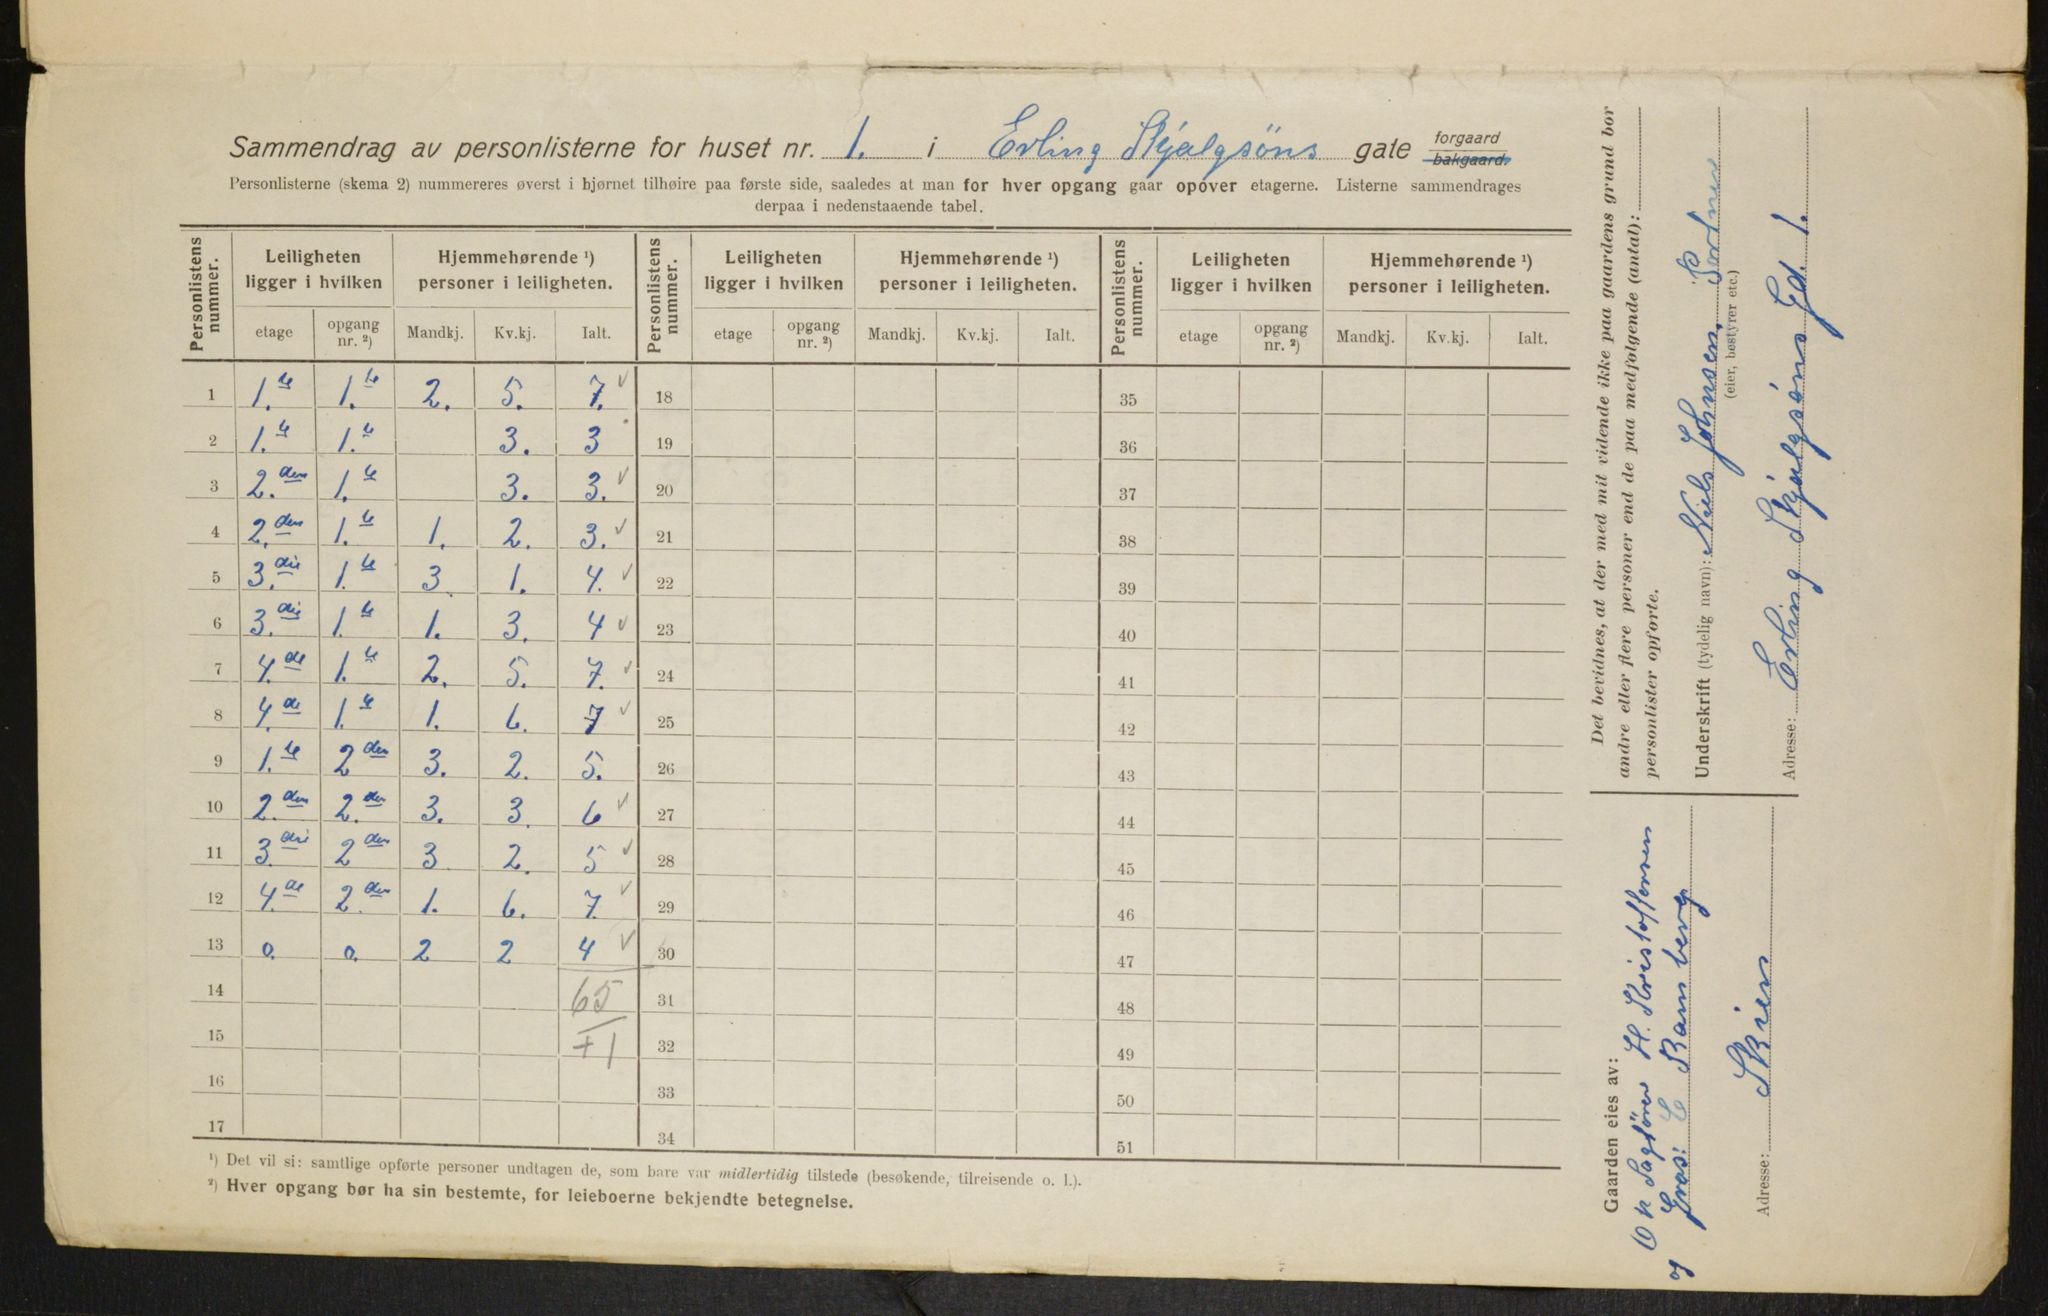 Sammendrag av personlisterne for huset nr. 1. i Erling Skjalgsöns gate forgaard bakgaard.
Personlisterne (skema 2) nummereres øverst i hjørnet tilhøire paa første side, saaledes at man for hver opgang gaar opover etagerne. Listerne sammendrages
derpaa i nedenstaaende tabel.
Personlistens nummer. Leiligheten ligger i hvilken Hjemmehørende ¹) personer i leiligheten. Personlistens nummer. Leiligheten ligger i hvilken Hjemmehørende ¹) personer i leiligheten. Personlistens nummer. Leiligheten ligger i hvilken Hjemmehørende ¹) personer i leiligheten.
etage opgang nr. ²) Mandkj. Kv.kj. Ialt. etage opgang nr. ²) Mandkj. Kv.kj. Ialt. etage opgang nr. ²) Mandkj. Kv.kj. Ialt.
1 1.te 1.te 2. 5. 7. ✓ 18 35
2 1.te 1.te 3. 3 19 36
3 2.den 1.te 3. 3. ✓ 20 37
4 2.den 1.te 1. 2. 3. ✓ 21 38
5 3.die 1.te 3 1. 4. ✓ 22 39
6 3.die 1.te 1. 3. 4 ✓ 23 40
7 4.de 1.te 2. 5. 7. ✓ 24 41
8 4.de 1.te 1. 6. 7 ✓ 25 42
9 1.te 2den 3. 2. 5. 26 43
10 2.den 2.den 3. 3. 6 ✓ 27 44
11 3.die 2den 3 2. 5 ✓ 28 45
12 4.de 2.den 1. 6. 7. ✓ 29 46
13 0. 0. 2 2 4 ✓ 30 47
14 65 31 48
15 + 1 32 49
16 33 50
17 34 51
¹) Det vil si: samtlige opførte personer undtagen de, som bare var midlertidig tilstede (besøkende, tilreisende o. l.).
²) Hver opgang bør ha sin bestemte, for leieboerne bekjendte betegnelse.
Det bevidnes, at der med mit vidende ikke paa gaardens grund bor
andre eller flere personer end de paa medfølgende (antal):
personlister opførte.
Underskrift (tydelig navn): Niels Johnsen, Portner
(eier, bestyrer etc.)
Adresse: Erling Skjalgsöns Gd. 1.
Gaarden eies av:
Sagförer H. Kristoffersen
og Gros: C Bamberg
Adresse: Skien